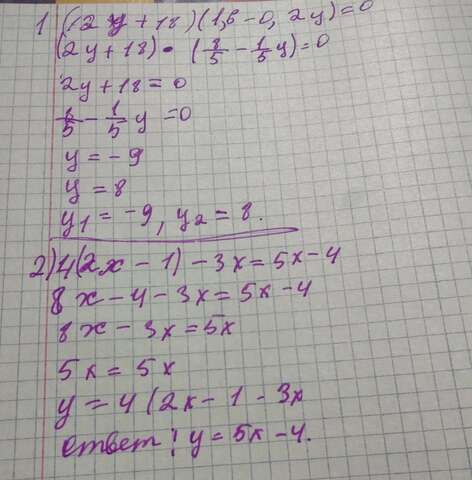 1 (12y+18)(1,6-0,2y)=0
(2y+18)•(8/5-1/5y)=0
2y+18=0
8/5-1/5y=0
y=-9
y=8
y1=-9, y2=8.
2)4(2x-1)-3x=5x-4
8x-4-3x=5x-4
8x-3x=5x
5x=5x
y=4(2x-1-3x
ответ! y=5x-4.